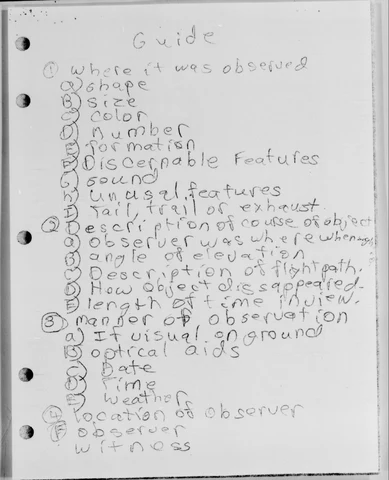 Guide
① where it was observed
a shape
B size
C color
D number
E formation
F Discernable Features
G sound
H unusal features
I Tail, trail or exhaust
② escription of course of object
a observer was where when
B angle of elevation
C Description of flight path.
D How object dissappeared.
E length of time in view.
③ manner of observation
a It visual on ground
B optical aids
C Date
D Time
E weather
④ location of observer
observer
witness